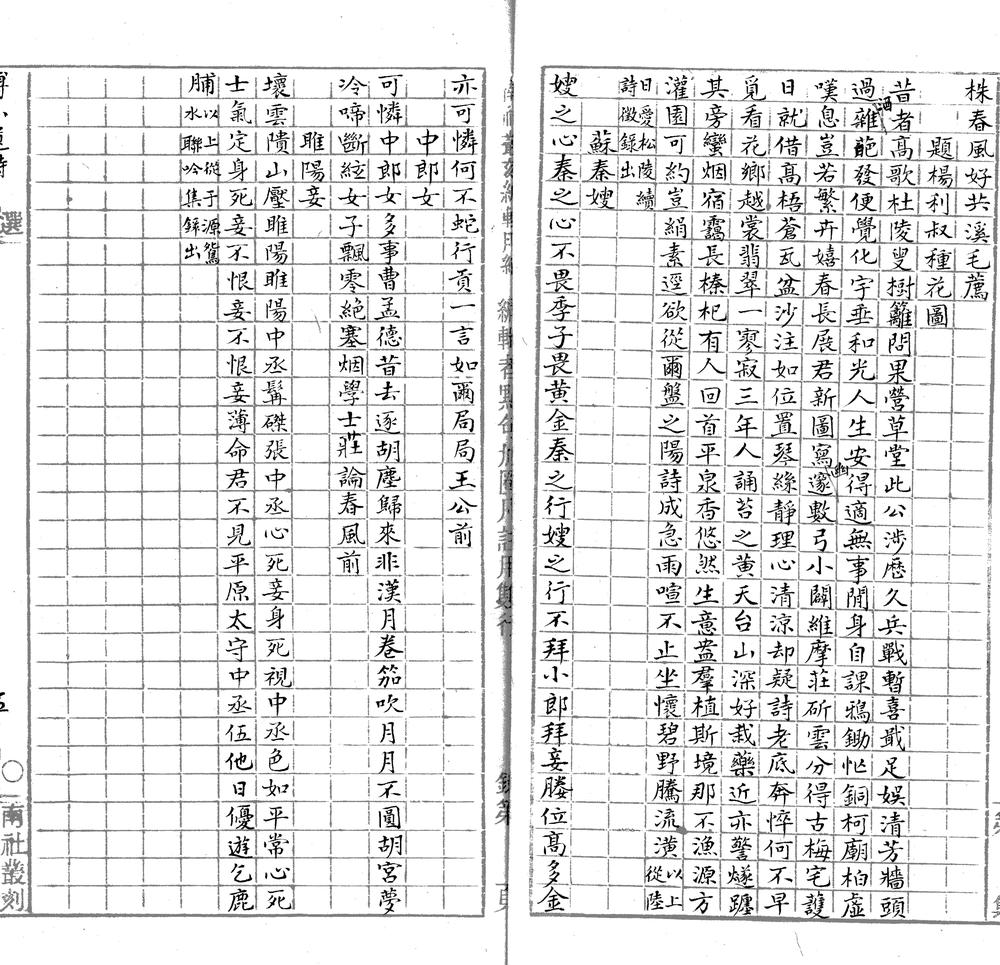 株春風好共溪毛薦
題楊利叔種花圖
昔者高歌杜陵叟樹籬問果營草堂此公涉歷久兵戰暫喜蕺足娛清芳牆頭
過酒雜葩發便覺化宇垂和光人生安得適無事閒身自課鴉鋤怭銅柯廟柏虛
嘆息豈若繁卉嬉春長展君新圖寫邃幽數弓小闢維摩莊斫雲分得古梅宅護
日就借高梧蒼瓦盆沙注如位置琴絲靜理心清涼却疑詩老底奔悴何不早
覓看花鄉越裳翡翠一寥寂三年人誦苔之黃天台山深好栽藥近亦警燧躔
其旁蠻烟宿靄長榛杞有人回首平泉香悠然生意蓋羣植斯境那不漁源方
灌園可約豈絹素逕欲從爾盤之陽詩成急雨喧不止坐懷碧野騰流潢以上從陸
日愛松陵續詩徵錄出
蘇秦嫂
嫂之心秦之心不畏季子畏黃金秦之行嫂之行不拜小郎拜妾媵位高多金
亦可憐何不蛇行貢一言如爾局局王公前
中郎女
可憐中郎女多事曹孟德昔去逐胡塵歸來非漢月卷笳吹月月不圓胡宮夢
冷啼斷絃女子飄零絕塞烟學士莊論春風前
睢陽妾
壞雲隤山壓睢陽睢陽中丞髯磔張中丞心死妾身死視中丞色如平常心死
士氣定身死妾不恨妾不恨妾薄命君不見平原太守中丞伍他日優遊乞鹿
脯以上從子源鴛水聯吟集錄出
選
南社叢刻